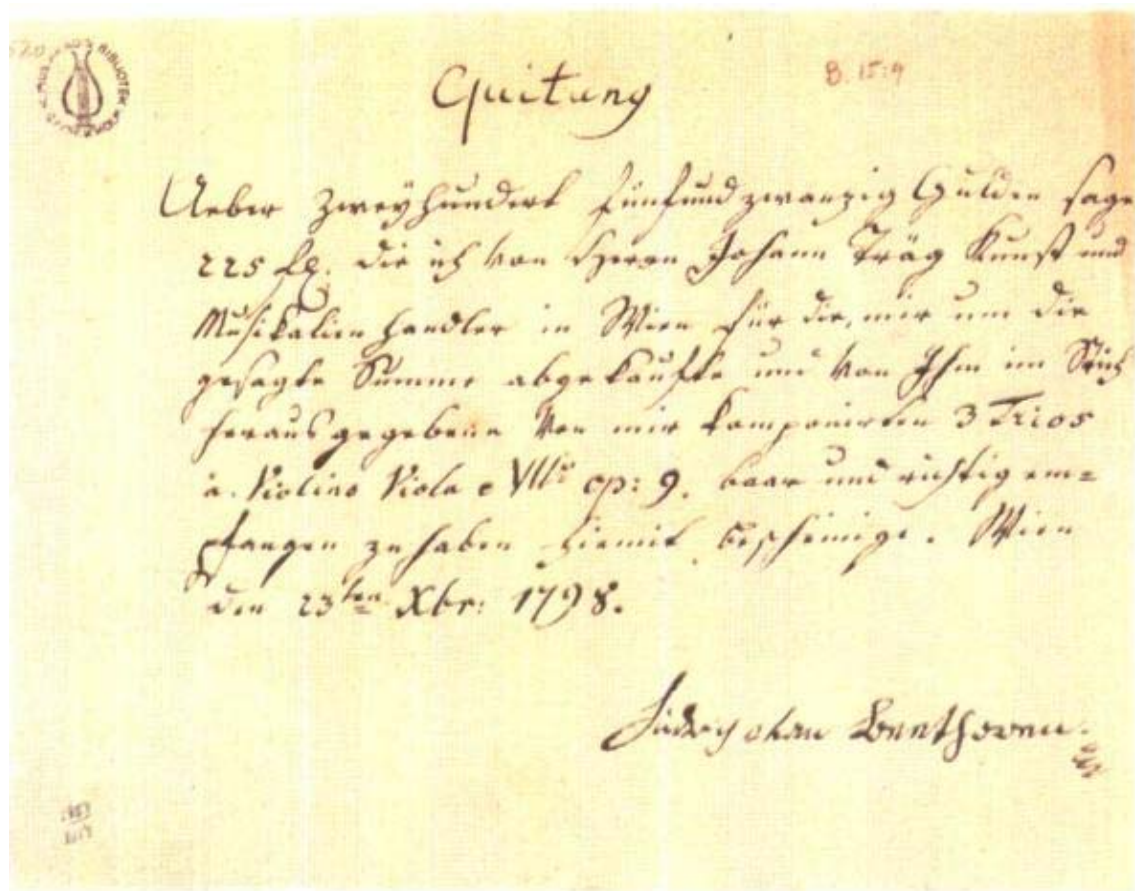 520
BIBLIOTEK
B. 15:9
Quitung
Ueber zweyhundert fünfundzwanzig Gulden sage
225 fl. die ich von Herrn Johann Träg Kunst und
Musikalien handler in Wien für die, mir um die
gesagte Summe abgekaufte und von Ihm im Stich
herausgegebene von mir komponirten 3 Trios
a. Violino Viola e Vllo op: 9. baar und richtig em=
pfangen zu haben hiemit bescheinige. Wien
den 23ten Xbr: 1798.
Ludwig van Beethoven